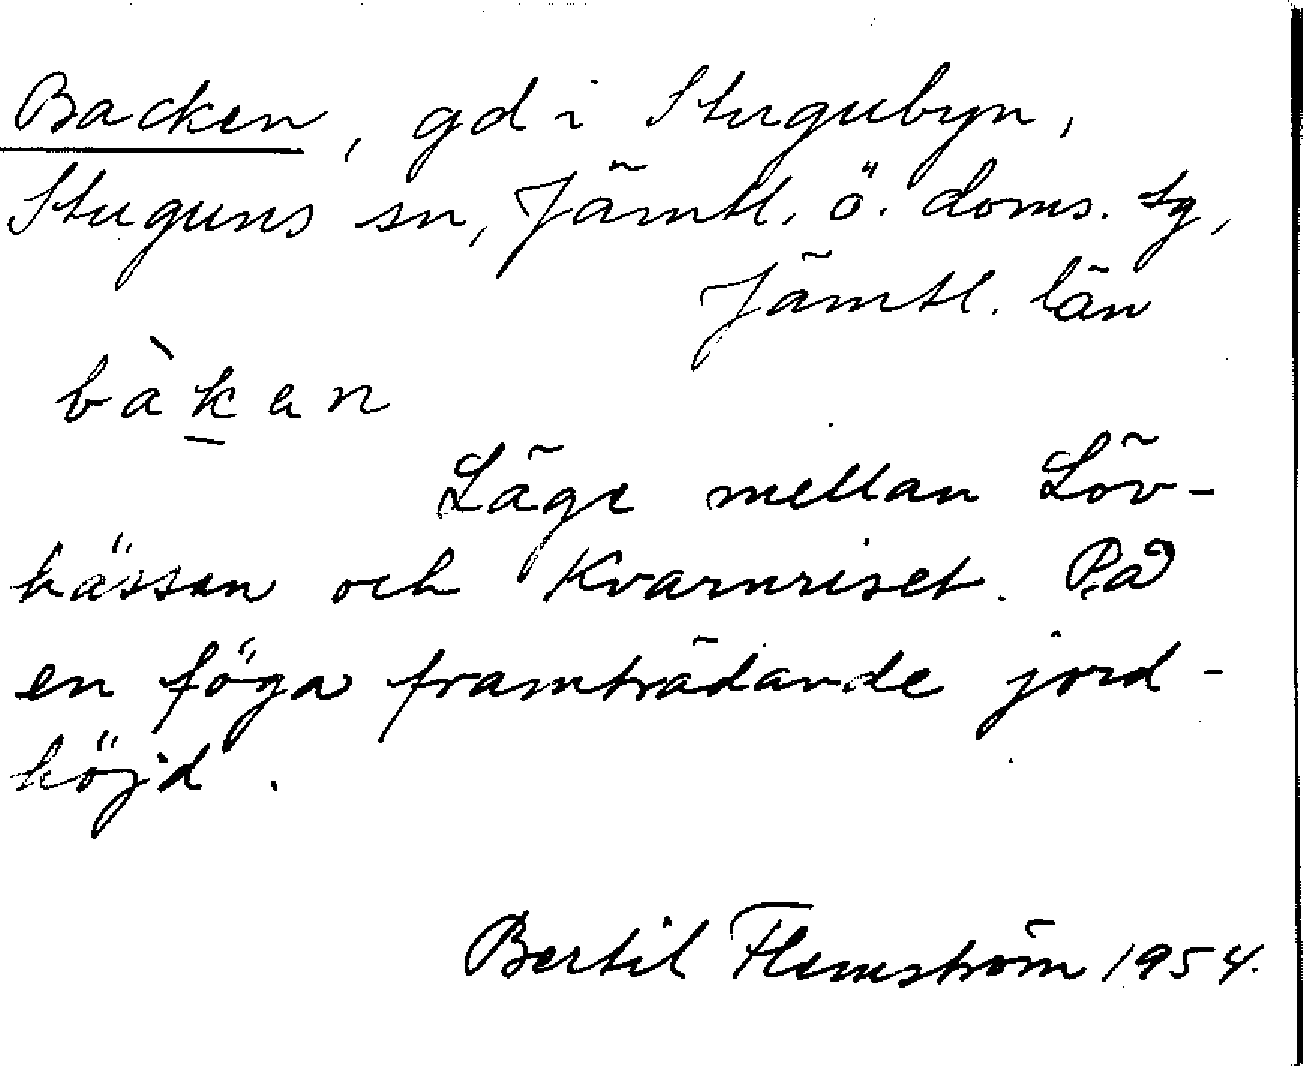 Backen, gd i Stugubyn,
Stuguns sn, Jämtl. ö. doms. tg,
Jämtl. län
bàkan
Läge mellan Löv-
hässan och Kvarnriset. På
en föga framträdande jord-
höjd.
Bertil Flemström 1954.